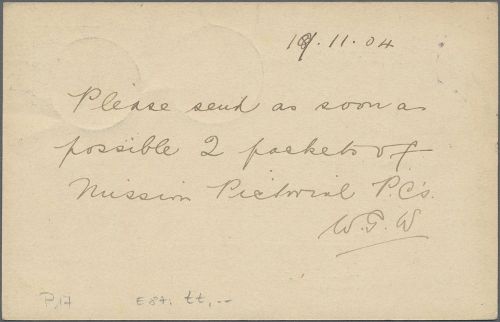 11.04
Please send as soon as
possible 2 packets of
Mission Pictorial P.C's.
W.G.W
P.17